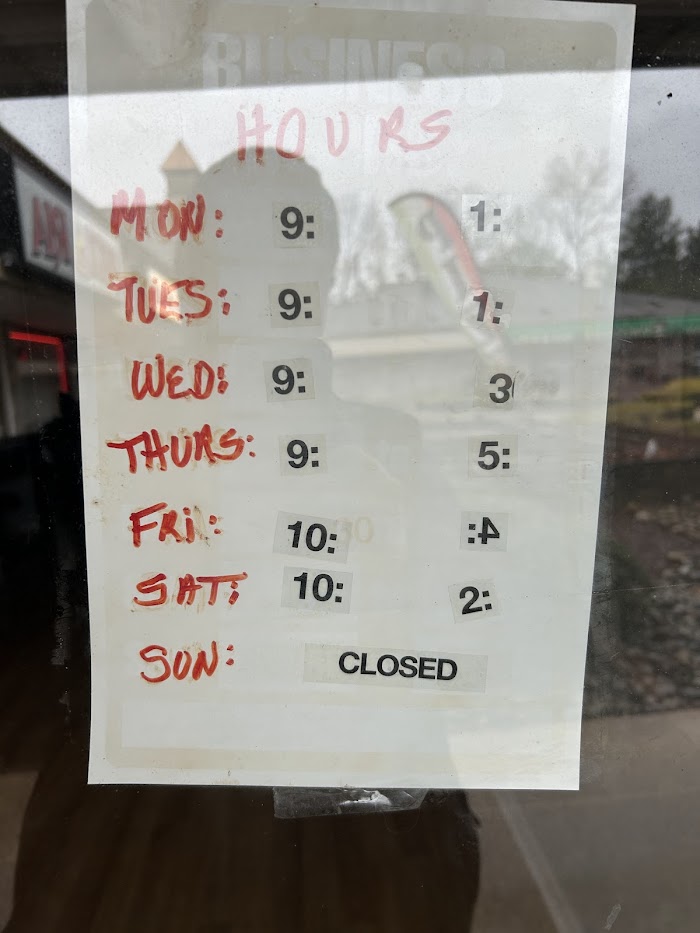 BUSINESS
HOURS
MON: 9: 1:
TUES: 9: 1:
WED: 9: 3
THURS: 9: 5:
FRI: 10: 4:
SAT: 10: 2:
SUN: CLOSED